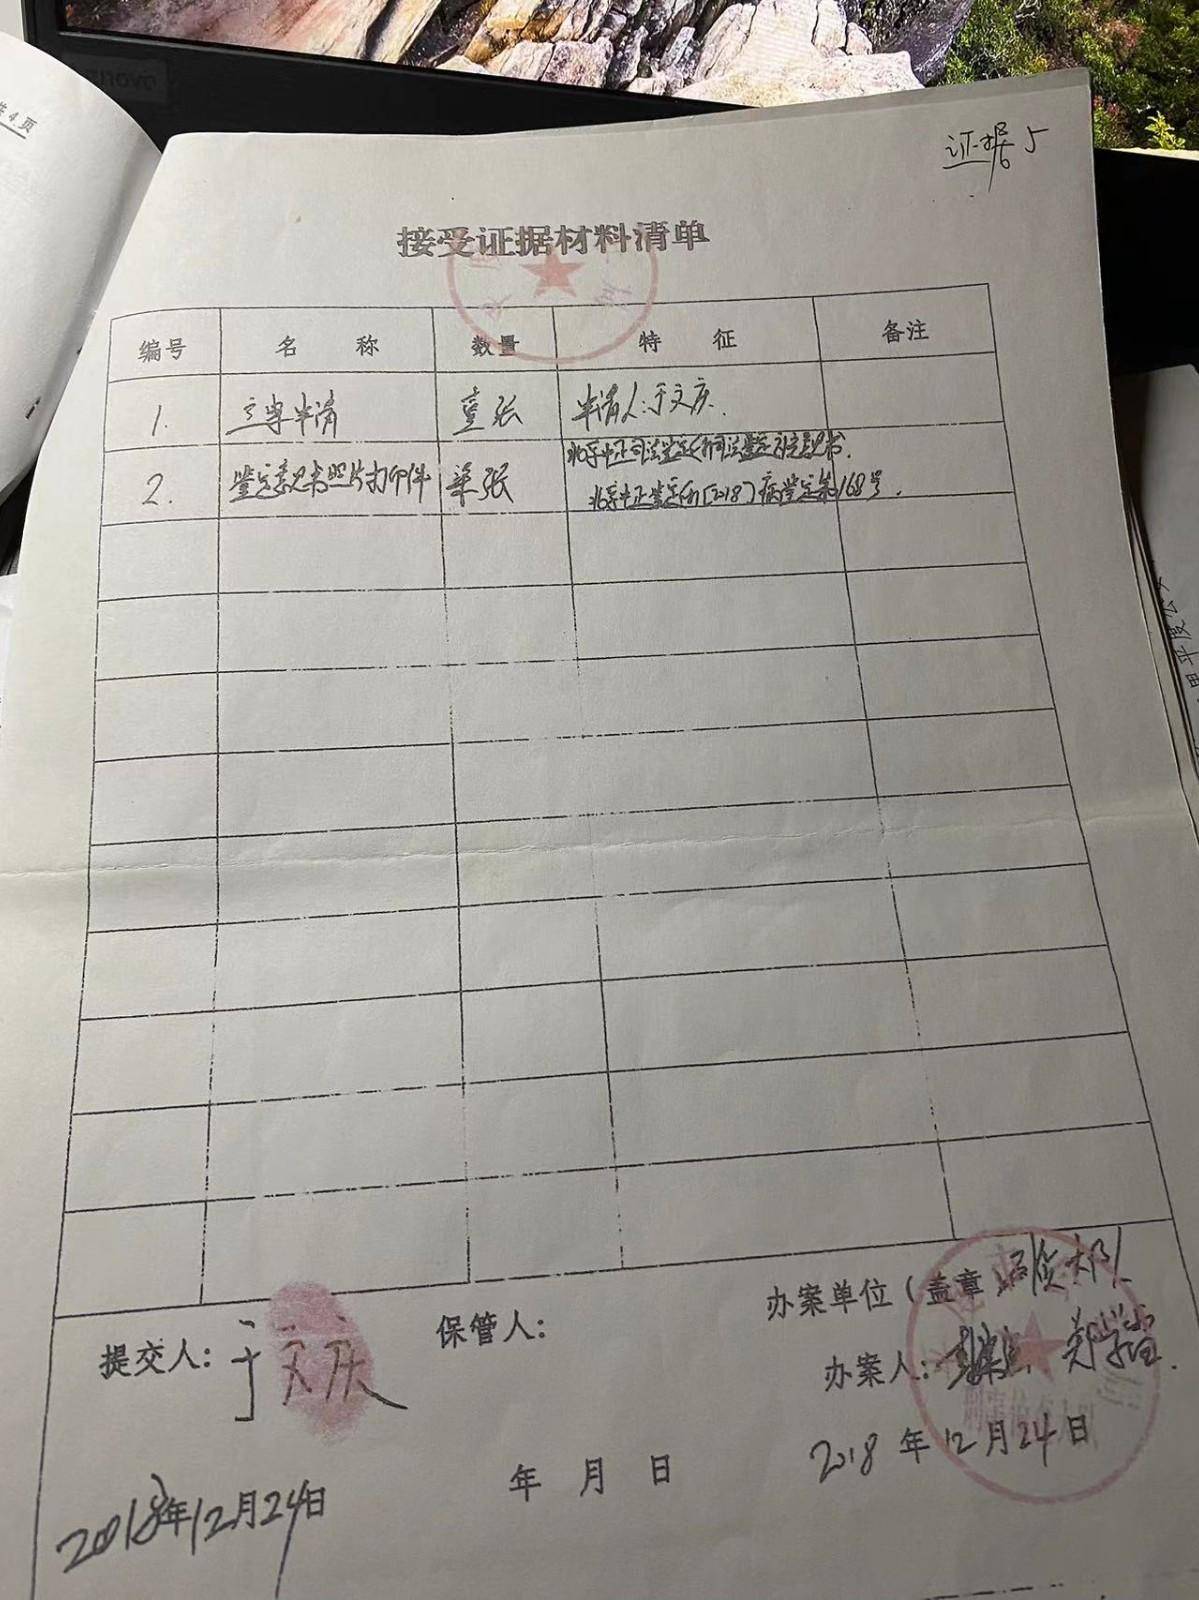 共4页
证据5
接受证据材料清单
编号 名称 数量 特征 备注
1. 立案申请 壹张 申请人:于文庆.
2. 鉴定意见书照片打印件 柒张 北京中正司法鉴定所司法鉴定意见书.
北京中正鉴定所[2018]病鉴定第168号.
提交人: 于文庆
保管人:
办案单位(盖章)
办案人:
2018年12月24日
年 月 日
2018年12月24日